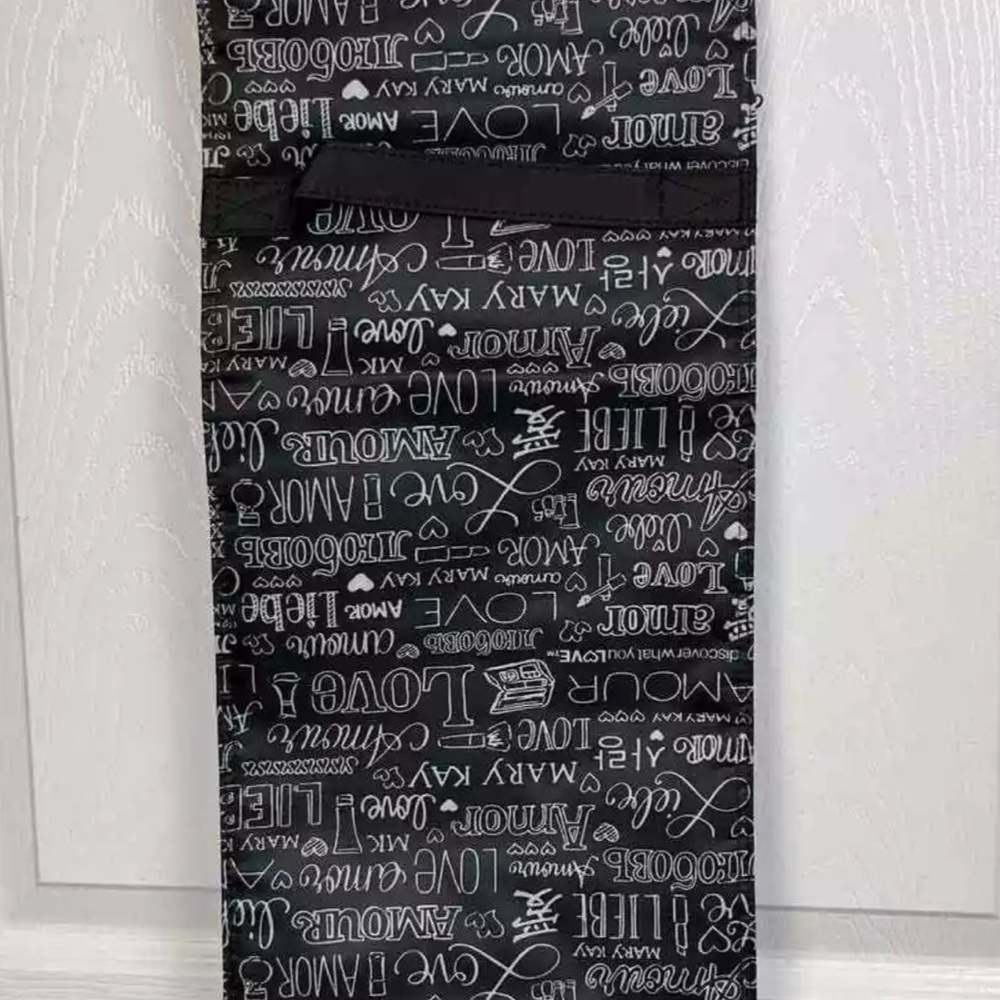 Amour Love AMOR
MARY KAY
LIEBE AMOUR
ЛЮБОВЬ Amour LOVE amor
MK MARY KAY
Liebe Amor love
MARY KAY
AMOR 사랑 LOVE Amour
MARY KAY
AMOUR LOVE
discover what you LOVE™
ЛЮБОВЬ amour
amor LOVE AMOR Liebe
Love amour MARY KAY
liebe AMOR ЛЮБОВЬ
Amour Love AMOR
MARY KAY
LIEBE AMOUR
ЛЮБОВЬ Amour LOVE amor
MK MARY KAY
Liebe Amor love
MARY KAY
AMOR 사랑 LOVE Amour
Love
discover what you
amor LOVE AMOR Liebe
Love amour MARY KAY
liebe AMOR ЛЮБОВЬ
AMOR